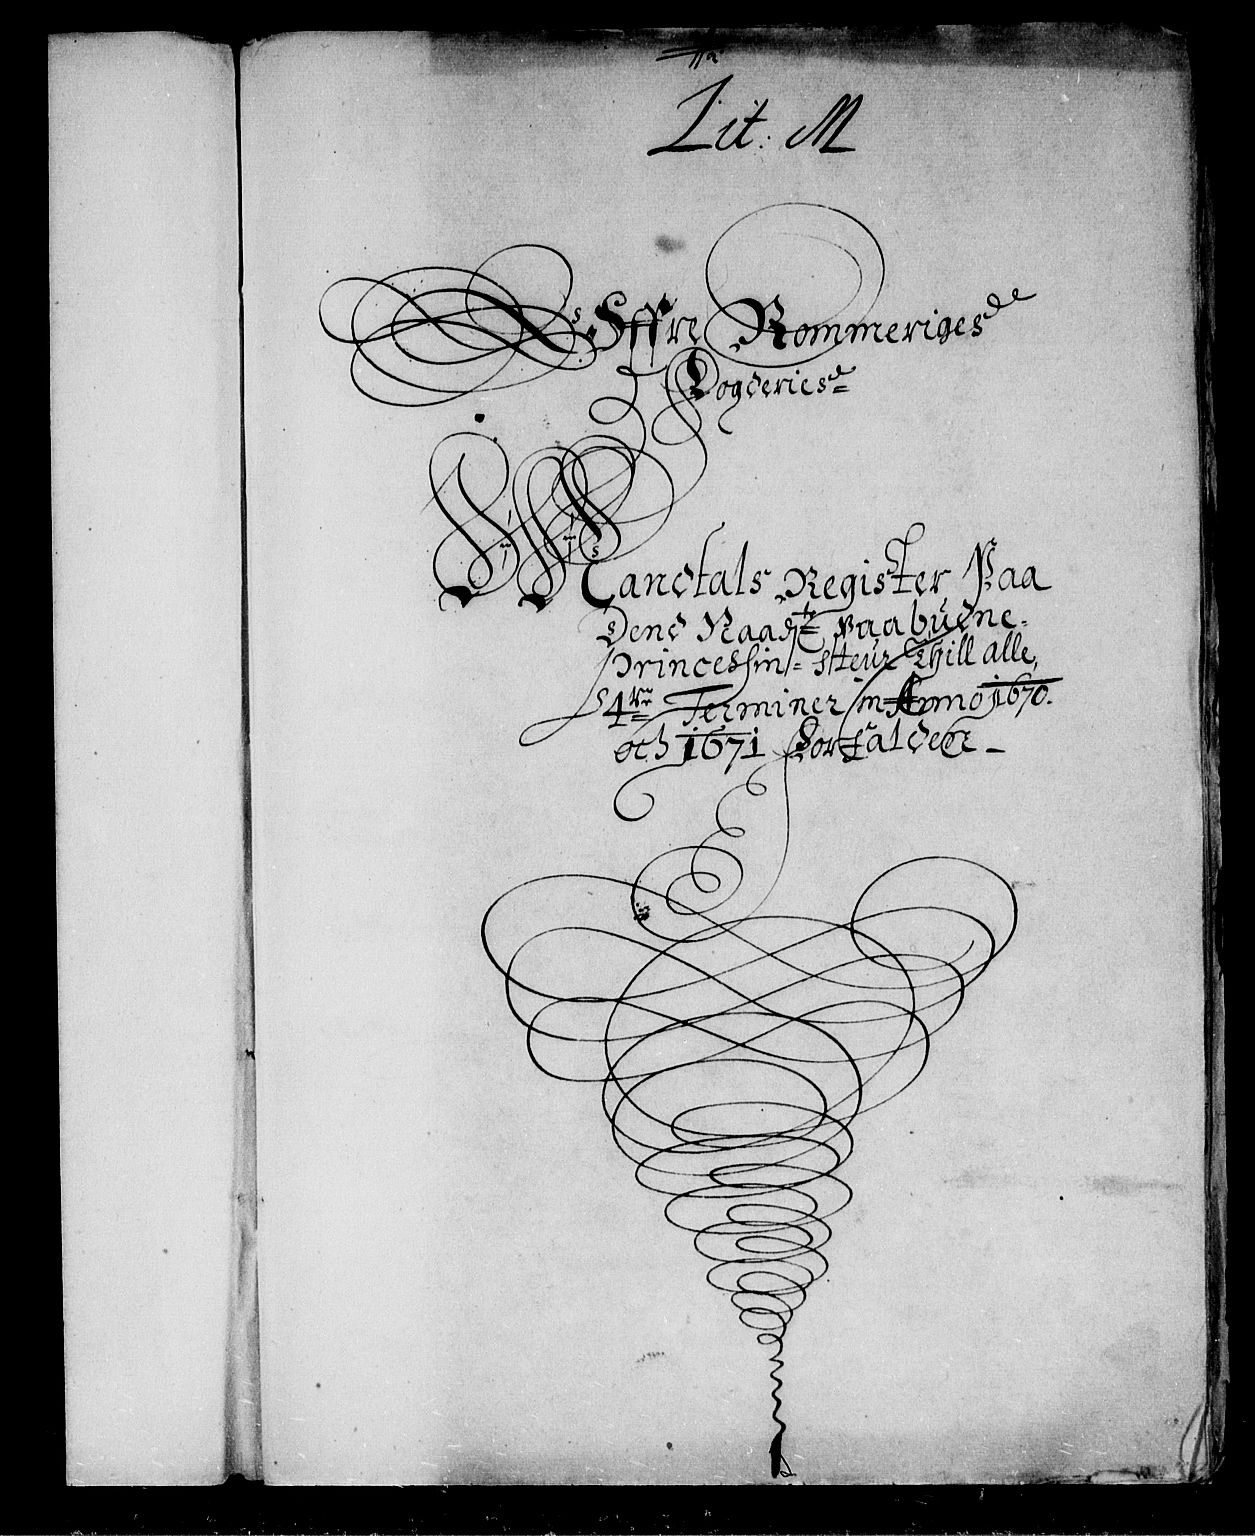 Lit: M
Øffre Rommeriges
Fogderies
Mandtals Register Paa
Dend Naadigste Paabudne
Princessin Steur Thill alle
4re Terminer in Anno 1670.
och 1671 Forfalden